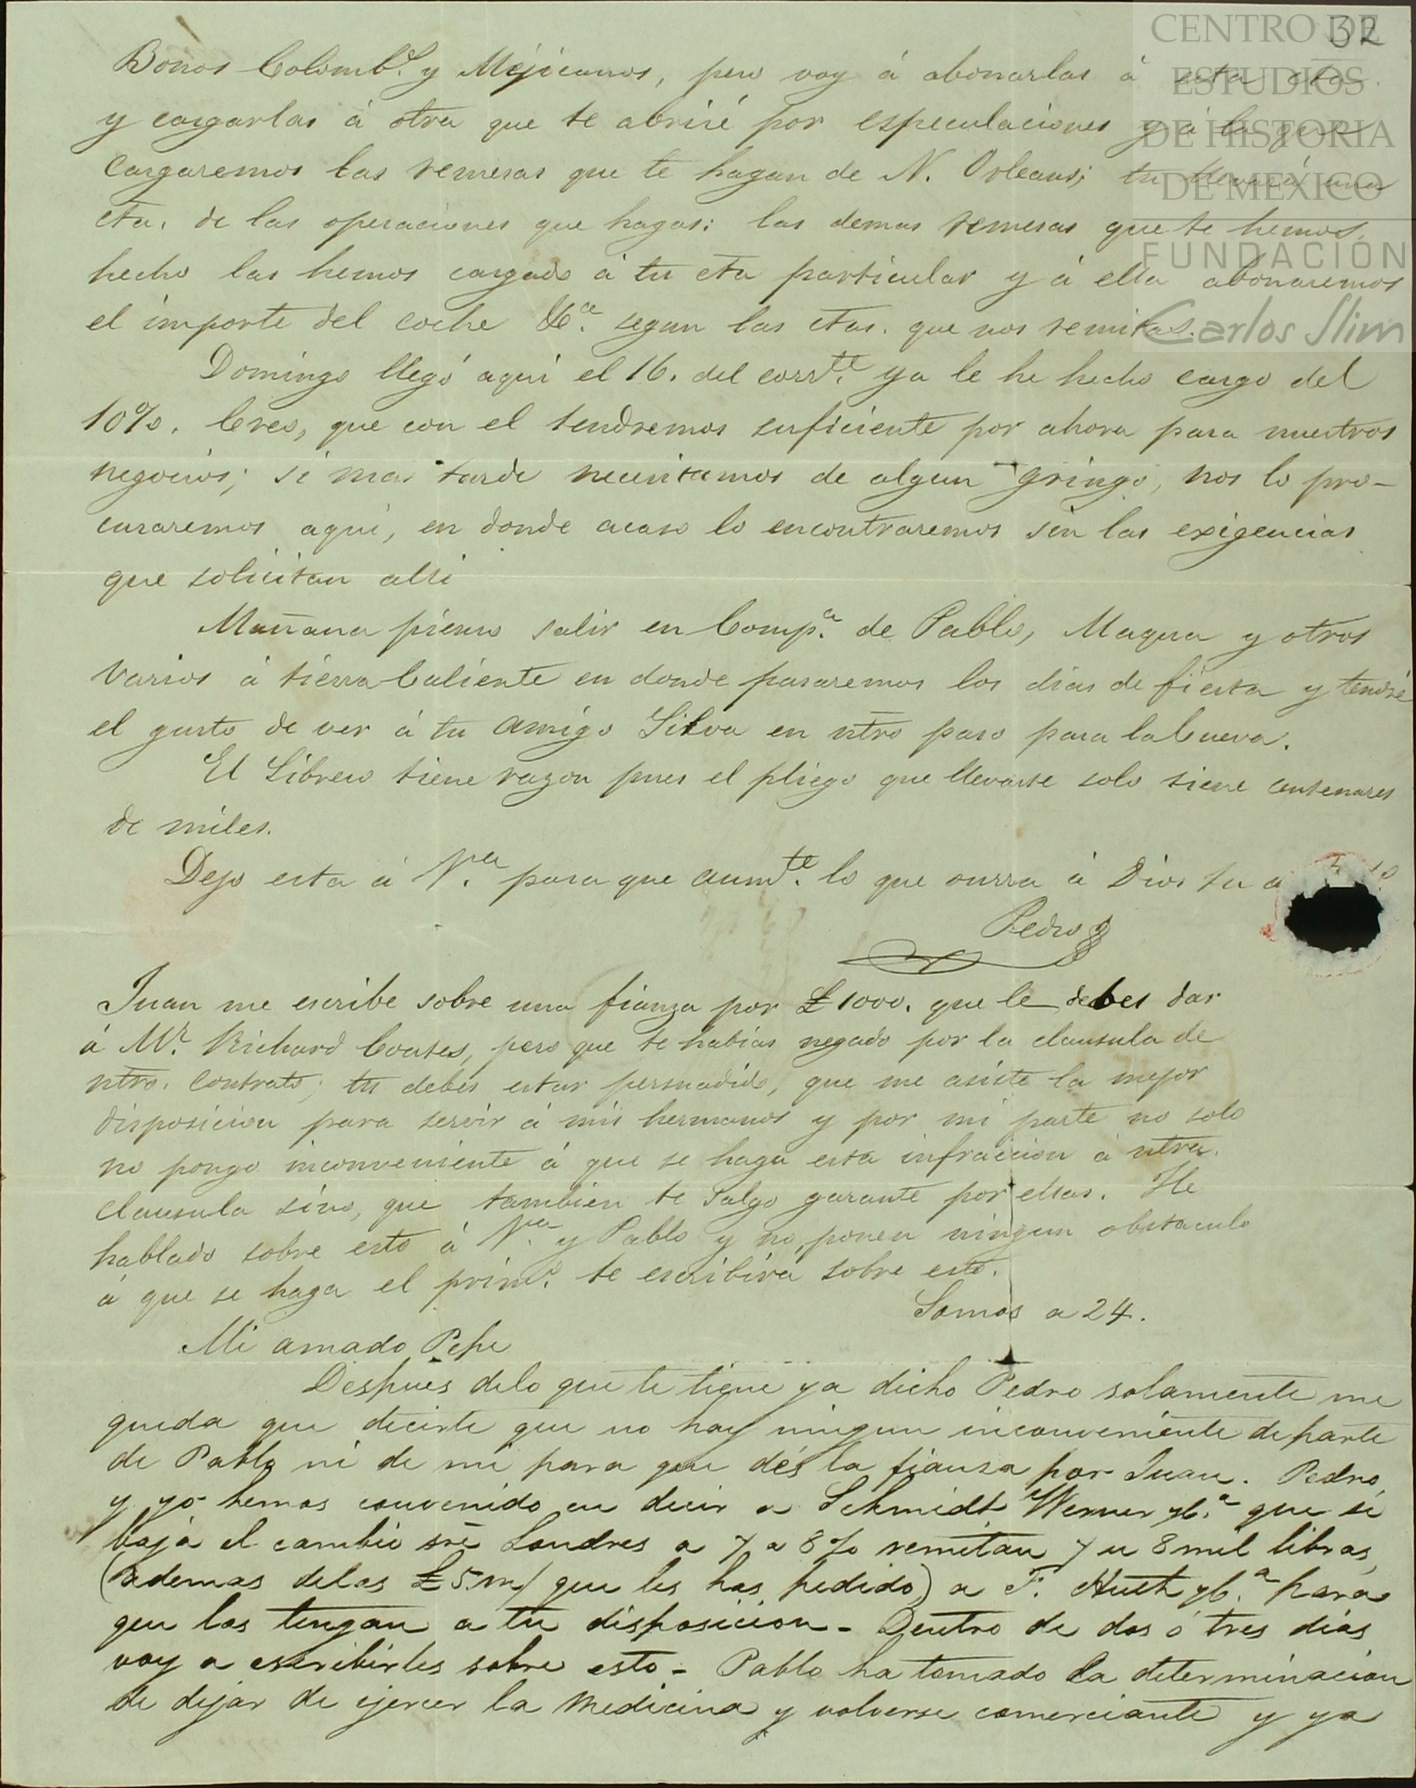 32
CENTRO DE
ESTUDIOS
DE HISTORIA
DE MÉXICO
FUNDACIÓN
Carlos Slim
Bonos Colomb.s y Méjicanos, pero voy á abonarlas á esta cta
y cargarlas á otra que te abriré por especulaciones y á la que
cargaremos las remesas que te hagan de N. Orleans; tu una
cta. de las operaciones que hagas: las demas remesas que te hemos
hecho las hemos cargado á tu cta particular y á ella abonaremos
el importe del coche &c.a segun las ctas. que nos remitas.
Domingo llegó aqui el 16. del corr.te ya le he hecho cargo del
10%. Creo, que con el tendremos suficiente por ahora para nuestros
negocios; si mas tarde necesitamos de algun gringo, nos lo pro-
curaremos aqui, en donde acaso lo encontraremos sin las exigencias
que solicitan alli
Mañana pienso salir en Comp.a de Pablo, Maqua y otros
varios á tierra Caliente en donde pasaremos los dias de fiesta y tendré
el gusto de ver á tu amigo Silva en ntro paso para la Cueva.
El Librero tiene razon pues el pliego que llevaste solo tiene centenares
de miles.
Dejo esta á N.ca para que aum.te lo que ocurra á Dios tu
Pedro
Juan me escribe sobre una fianza por £1000. que le debes dar
á Mr. Richard Coates, pero que te habias negado por la clausula de
ntro. contrato; tu debes estar persuadido, que me asiste la mejor
disposicion para servir á mis hermanos y por mi parte no solo
no pongo inconveniente á que se haga esta infraccion á ntra.
clausula sino, que tambien te salgo garante por ellas. He
hablado sobre esto á N.ca y Pablo y no ponen ningun obstaculo
á que se haga el prim.o te escribirá sobre esto.
Somos a 24.
Mi amado Pepe
Despues delo que te tiene ya dicho Pedro solamente me
queda que decirte que no hay ningun inconveniente departe
de Pablo ni de mi para que dés la fianza por Juan. Pedro
y yo hemos convenido en decir a Schmidt Werner yC.a que si
baja el cambio sre Londres a 7 a 8% remitan 7 u 8 mil libras
(ademas delas £5m/ que les has pedido) a F. Huth yC.a para
que las tengan a tu disposicion - Dentro de dos ó tres dias
voy a escribirles sobre esto - Pablo ha tomado la determinacion
de dejar de ejercer la medicina y volverse comerciante y ya